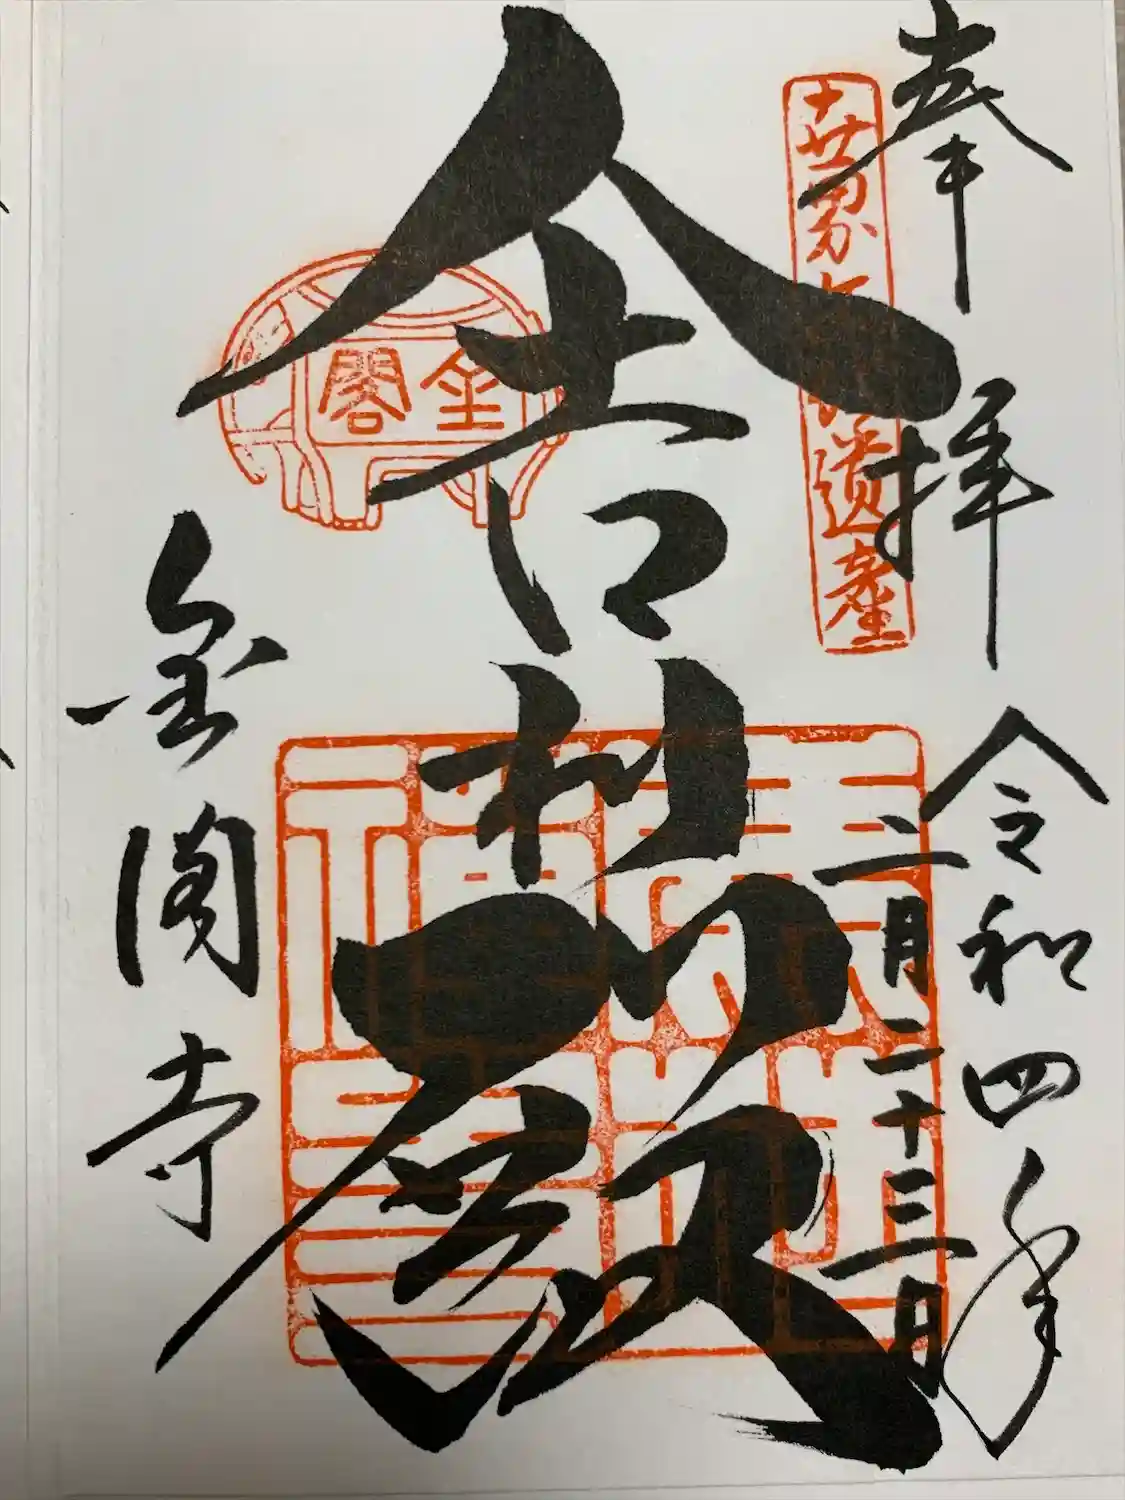 奉拝
令和四年
二月二十三日
世界文化遺産
舎利殿
金閣
金閣寺